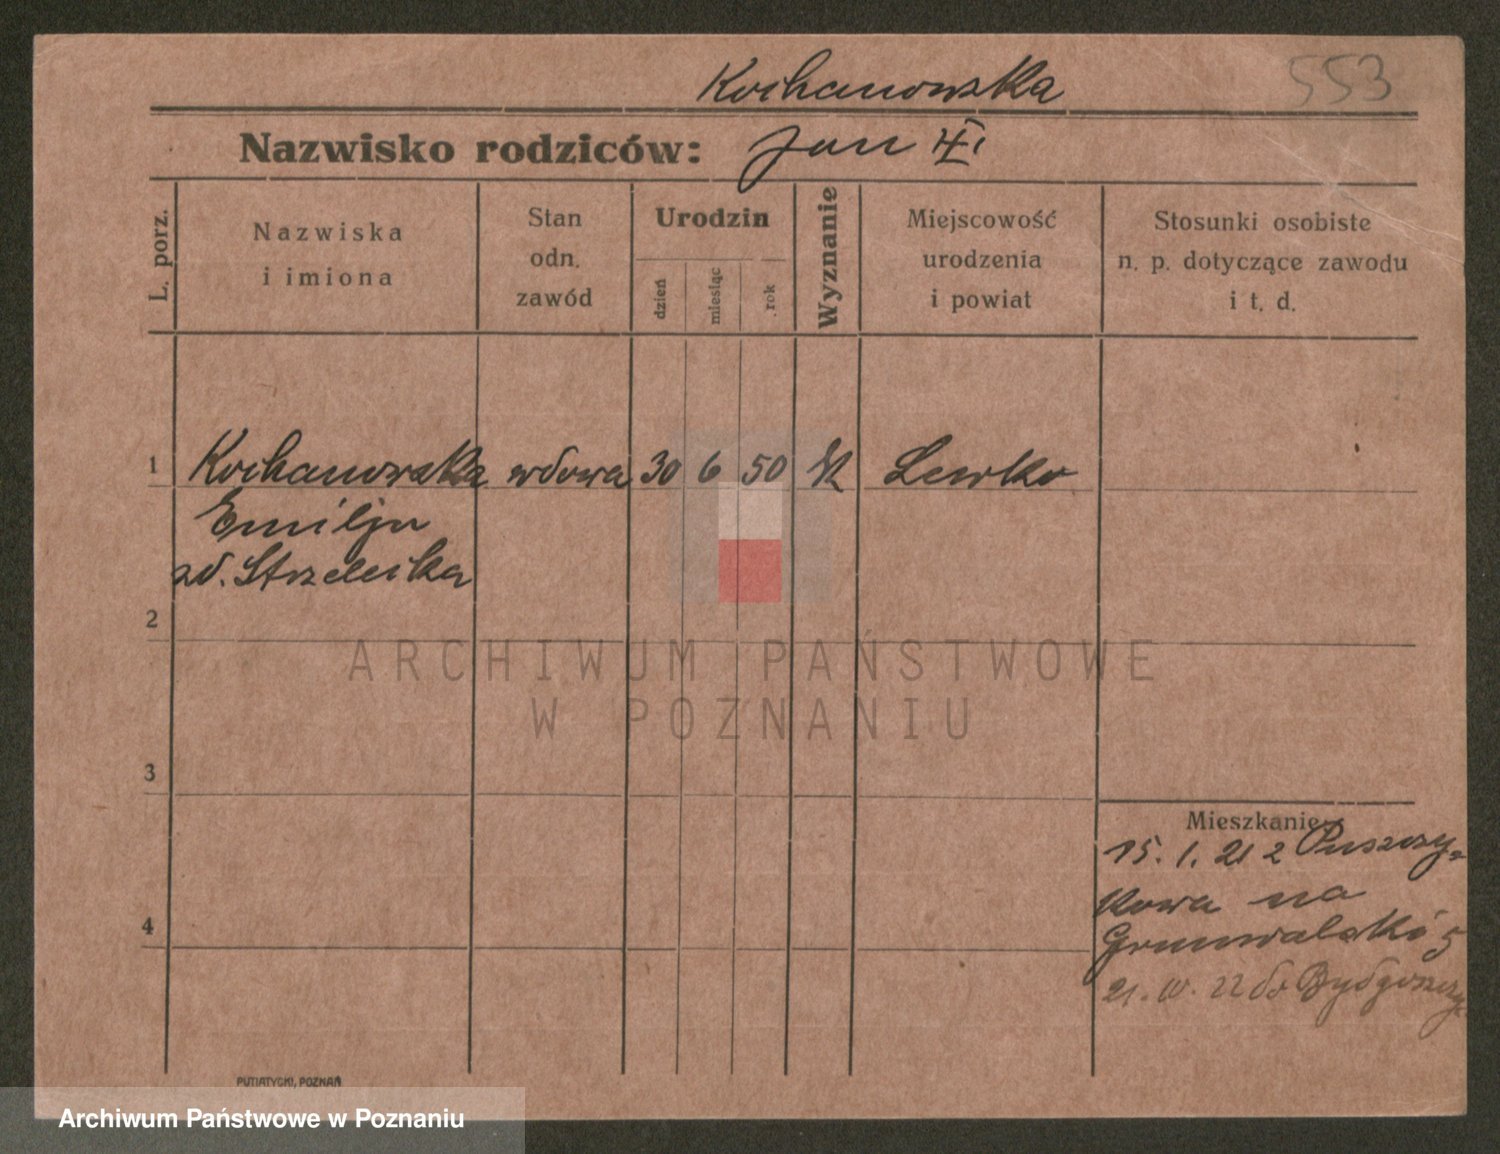 Kochanowska
553
Nazwisko rodziców: Jan
L. porz.
Nazwiska
i imiona
Stan
odn.
zawód
Urodzin
dzień
miesiąc
rok
Wyznanie
Miejscowość
urodzenia
i powiat
Stosunki osobiste
n. p. dotyczące zawodu
i t. d.
1 Kochanowska wdowa 30 6 50 Lewko
Emilja
Strzelecka
2
3
4
Mieszkanie
15. 1. 21 z Puszczy-
kowa na
Grunwaldzki 5
21. IV. 22 do Bydgoszczy
PUTIATYCKI, POZNAŃ
ARCHIWUM PAŃSTWOWE
W POZNANIU
Archiwum Państwowe w Poznaniu